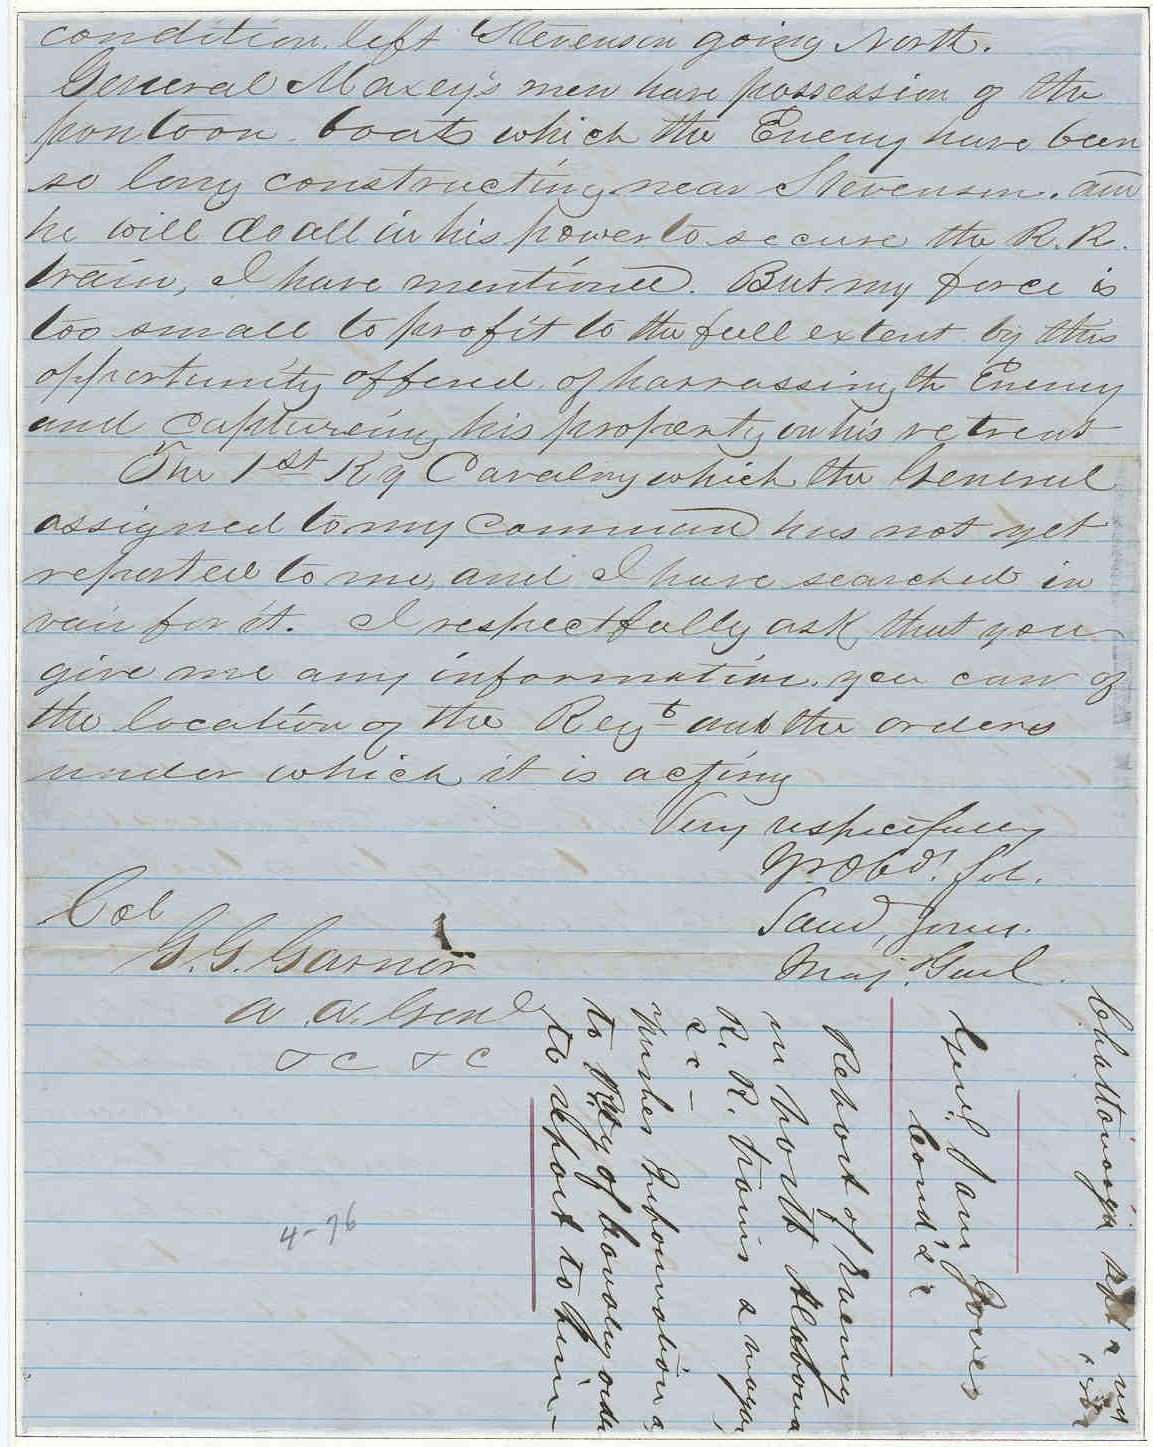 condition. left Stevenson going North.
General Maxey's men have possession of the
pontoon boats which the Enemy have been
so long constructing near Stevenson. and
he will do all in his power to secure the R. R.
train, I have mentioned. But my force is
too small to profit to the full extent by this
opportunity offered of harrassing the Enemy
and captureing his property on his retreat
The 1st Ky Cavalry which the General
assigned to my command has not yet
reported to me, and I have searched in
vain for it. I respectfully ask that you
give me any information you can of
the location of the Regt and the orders
under which it is acting
Very respectfully
Yr Obdt Svt.
Saml, Jones.
Maj. Genl.
Col
G. G. Garner
A. A. Genl
&c &c
Chattanooga
Genl. Saml Jones
Comd'g
Report of Enemy
in North Alabama
R. R. trains &
&c —
wishes information
to Reg of Cavalry
to report to him —
4-76